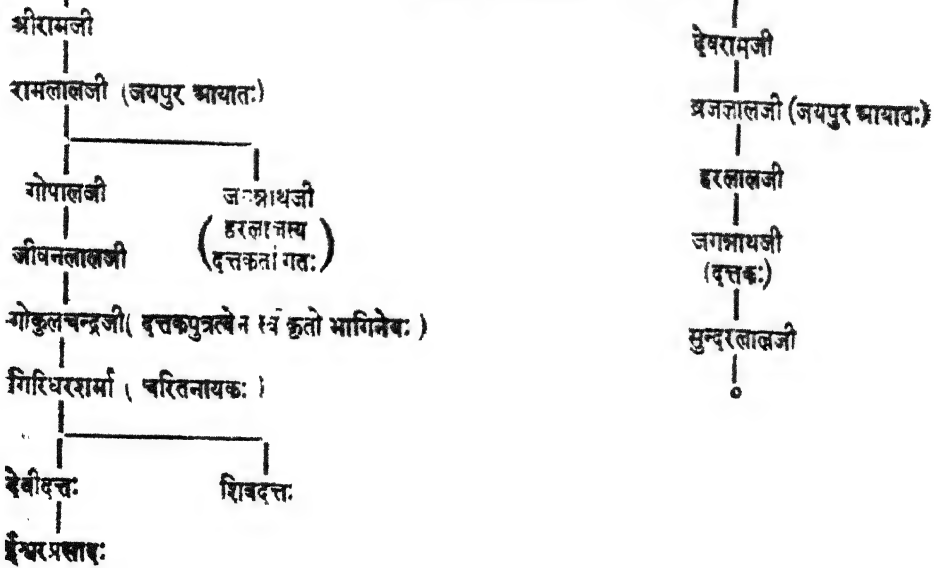 श्रीरामजी
रामलालजी (जयपुर आयातः)
गोपालजी
जगन्नाथजी
(हरलालस्य
दत्तकतां गतः)
जीवनलालजी
गोकुलचन्द्रजी( दत्तकपुत्रत्वेन स्वीकृतो भागिनेयः )
गिरिधरशर्मा ( चरितनायकः )
देवीदत्तः
शिवदत्तः
ईश्वरप्रसादः
देवरामजी
व्रजलालजी (जयपुर आयातः)
हरलालजी
जगन्नाथजी
(दत्तकः)
सुन्दरलालजी